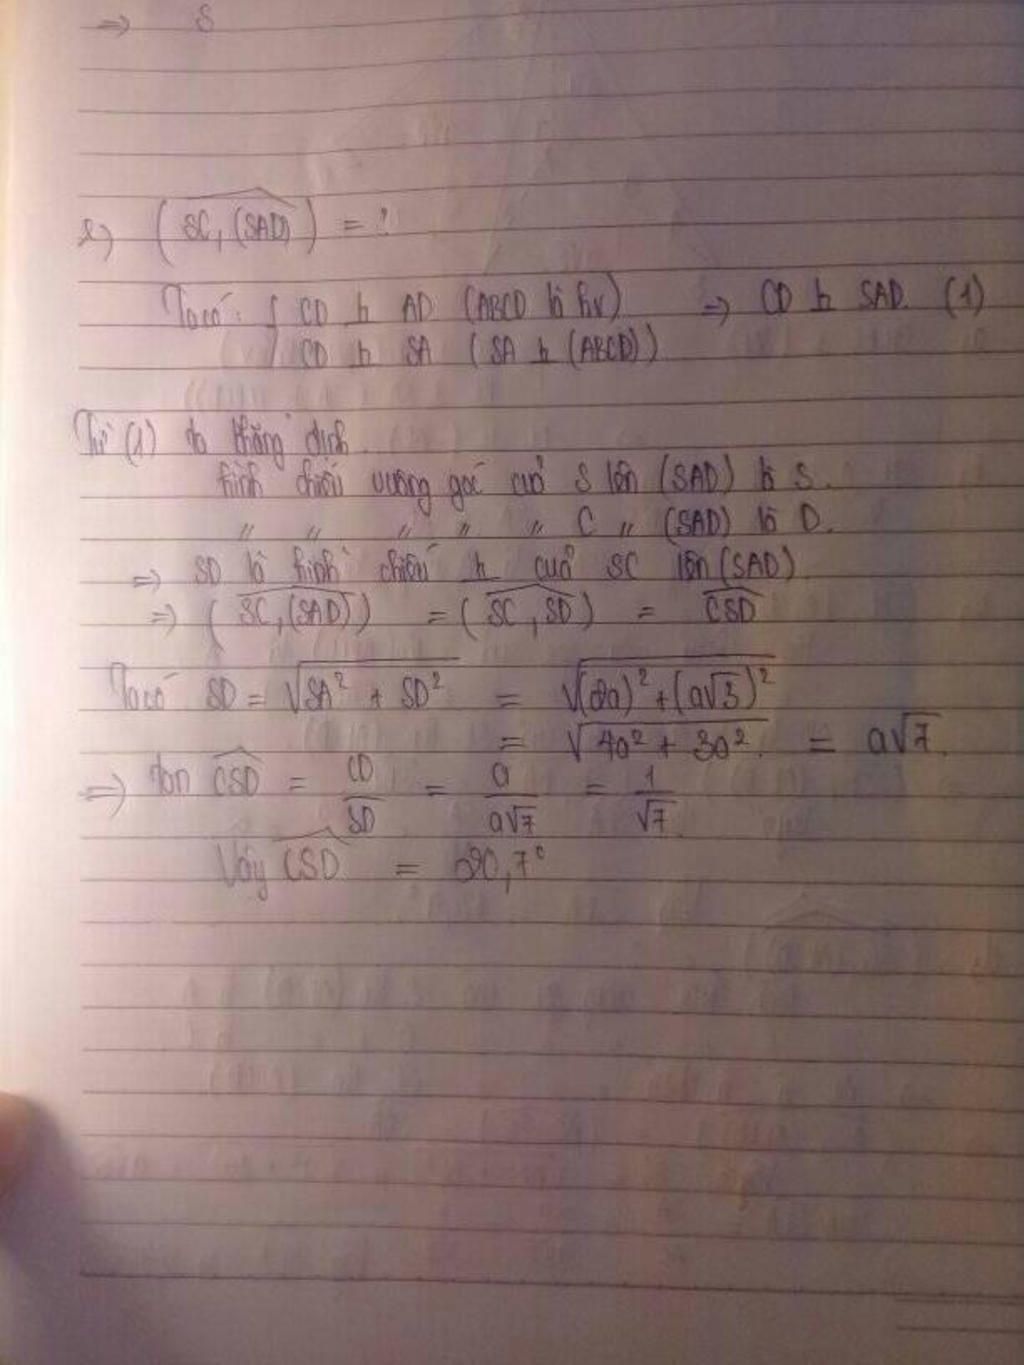 => S
e) (SC, (SAD)) = ?
Ta có: { CD ⊥ AD (ABCD là hv) => CD ⊥ SAD. (1)
CD ⊥ SA (SA ⊥ (ABCD))
Từ (1) ta khẳng định
hình chiếu vuông góc của S lên (SAD) là S.
" " " " " C " (SAD) là D.
=> SD là hình chiếu ⊥ của SC lên (SAD)
=> (SC, (SAD)) = (SC, SD) = CSD
Ta có SD = √SA² + SD² = √(2a)² + (a√3)²
= √4a² + 3a² = a√7.
=> tan CSD = CD/SD = a/a√7 = 1/√7
Vậy CSD = 20,7°